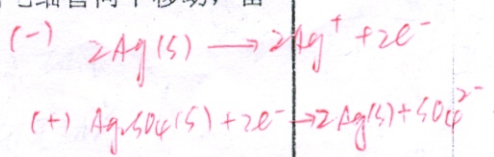 (-) 2Ag(s) → 2Ag⁺ + 2e⁻
(+) Ag₂SO₄(s) + 2e⁻ → 2Ag(s) + SO₄²⁻